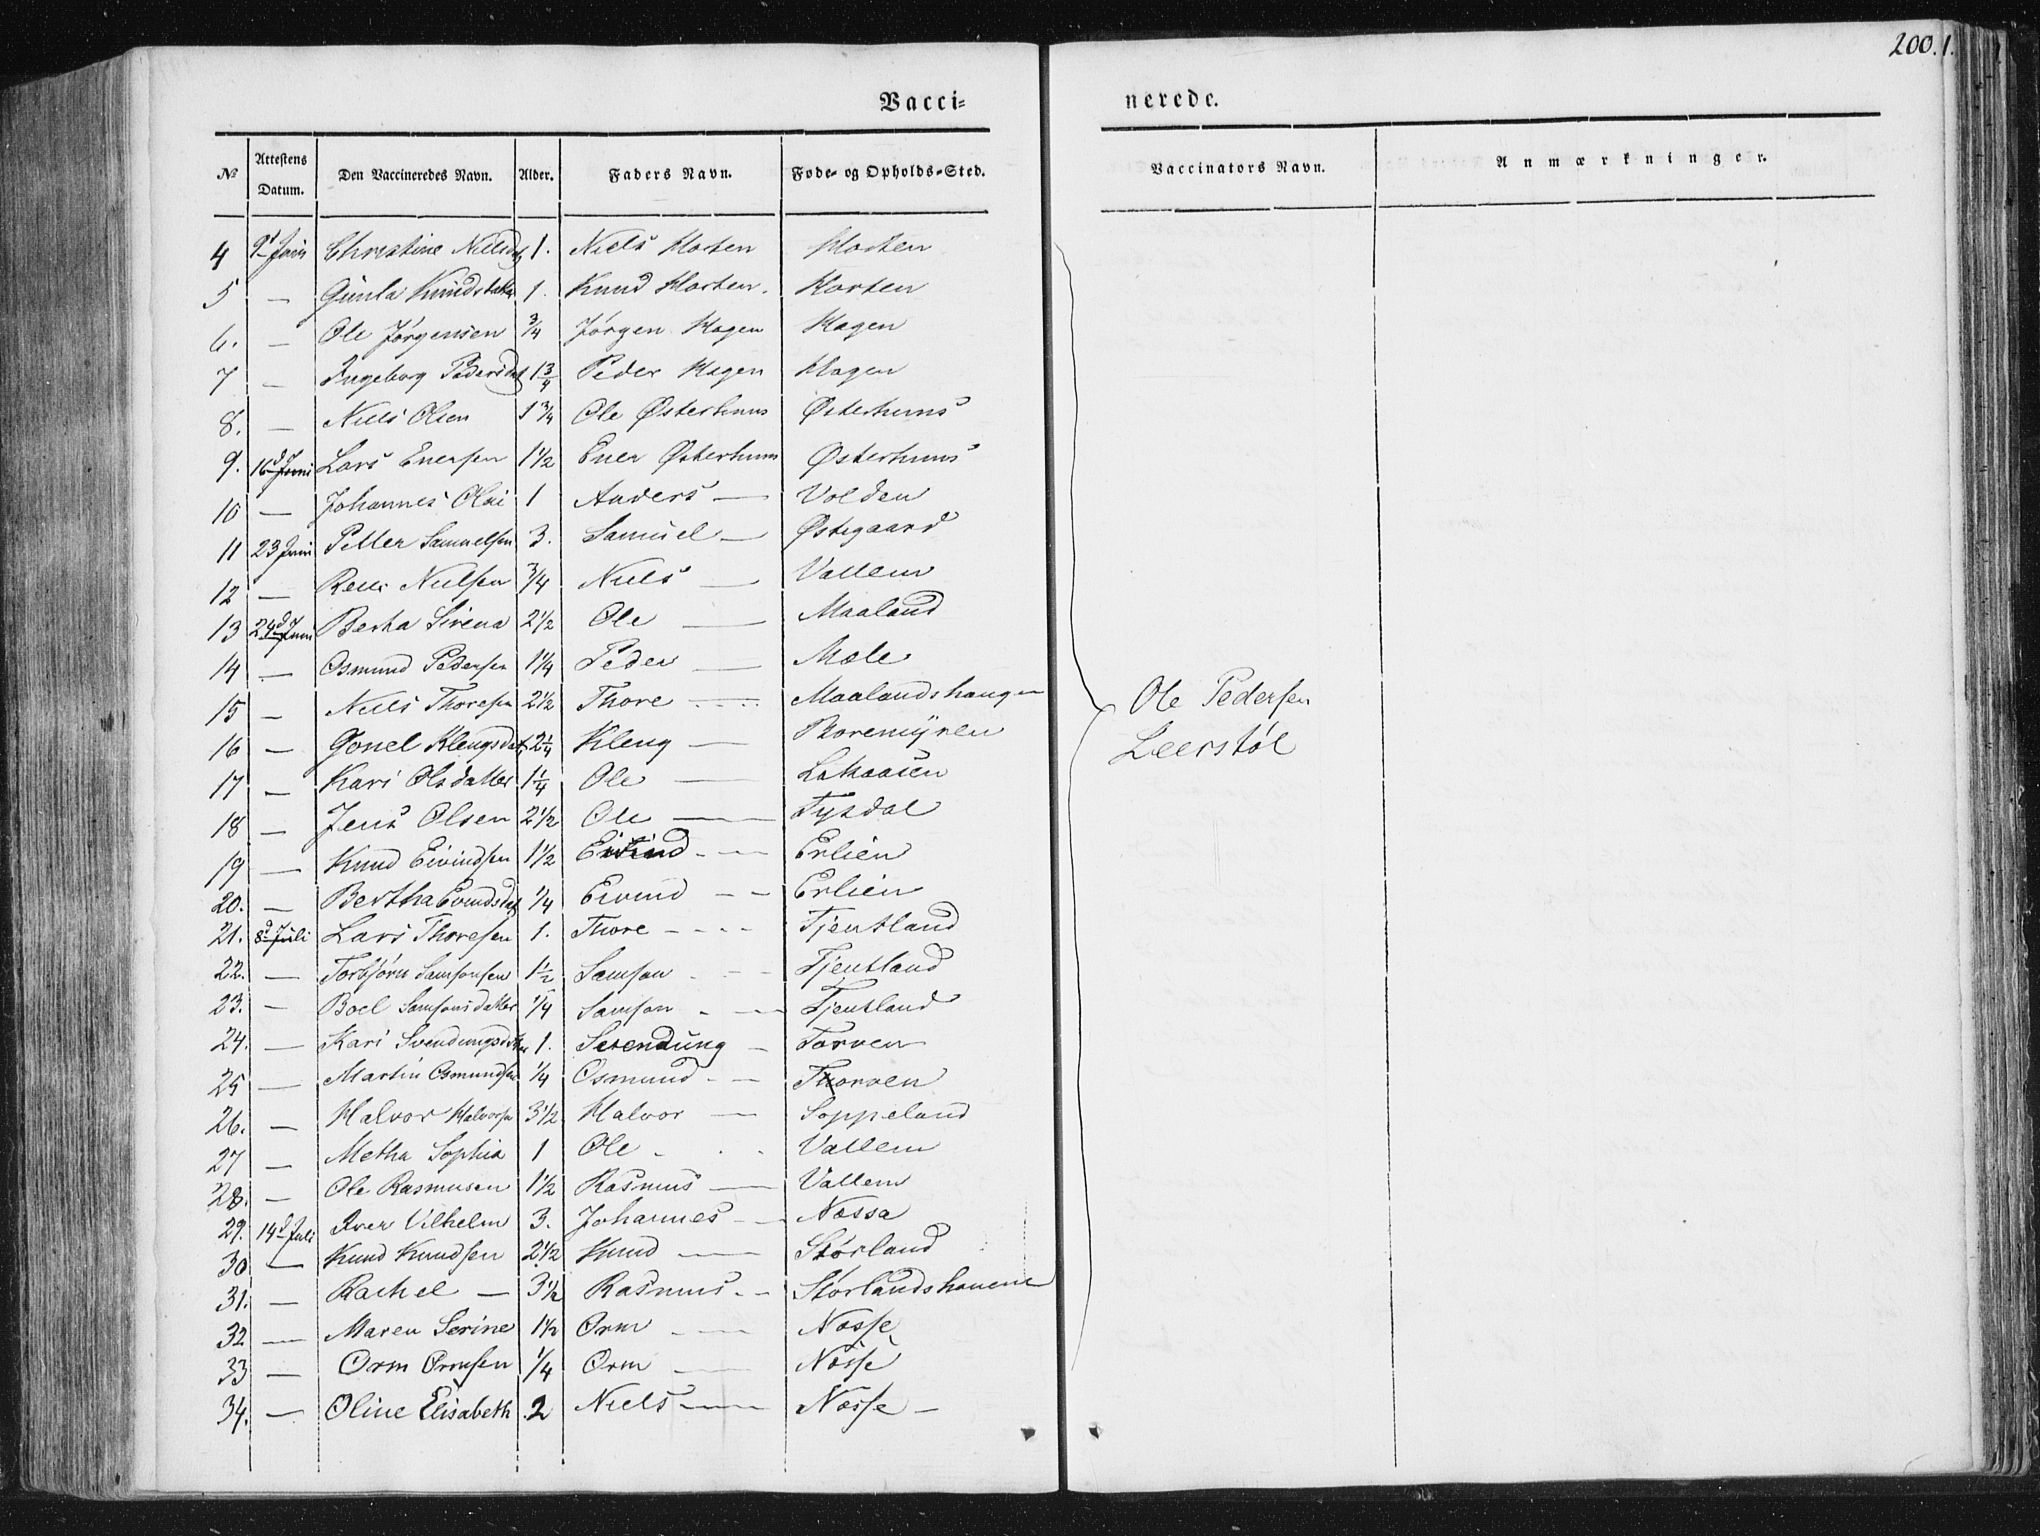 200.1.
Vacci= nerede.
No Attestens Datum. Den Vaccineredes Navn. Alder. Faders Navn. Føde- og Opholds-Sted. Vaccinators Navn. Anmærkninger.
4 9d Juni Christine Nielsd 1. Niels Horten Horten
5 — Gunla Knudsdatter 1. Knud Horten. Horten
6. — Ole Jørgensen 3/4 Jørgen Hagen Hagen
7 — Ingeborg Pedersdat 1 3/4 Peder Hagen Hagen
8. — Niels Olsen 1 3/4 Ole Østerhuus Østerhuus
9. 16d Juni Lars Enersen 1 1/2 Ener Østerhuus Østerhuus
10 — Johannes Olai 1 Anders — Volden
11 23 Juni Petter Samuelsen 3. Samuel — Østegaard
12 — Nielsen 3/4 Niels — Vallem
13 24d Juni Bertha Sirena 2 1/2 Ole — Maaland
14 — Osmund Pedersen 1 1/4 Peder — Mæle
15 — Niels Thoresen 2 1/2 Thore — Maalandshaugen
16 — Gonel Klengsdat 2 1/4 Kleng — Boremyren
17 — Kari Olsdatter 1 1/4 Ole —
18 — Jens Olsen 2 1/2 Ole — Tysdal
19 — Knud Eivindsen 1 1/2 Eivind — Erlien
20. — Bertha Evindsdat 1/4 Eivind — — Erlien
21. 8d Juli Lars Thoresen 1. Thore — Tjentland
22. — Torbjørn Samsonsen 1 1/2 Samson — Tjentland
23. — Boel Samsonsdatter 1/4 Samson — Tjentland
24. — Kari Svendungsdatter 1. Svendung — Torven
25 — Martin Osmundsen 1/4 Osmund — — Thorven
26. — Halvor Halvorsen 3 1/2 Halvor — Soppeland
27 — Metha Sophia 1 Ole — Vallem
28. — Ole Rasmusen 1 1/2 Rasmus — Vallem
29. 14d Juli Iver Vilhelm 3. Johannes — Nøssa
30 — Knud Knudsen 2 1/2 Knud — Størland
31. — Rachel — 3 1/2 Rasmus — Størlandshauene
32 — Maren Serine 1 1/2 Orm — Nøsse
33 — Orm Ormsen 1/4 Orm — Nøsse
34. — Oline Elisabeth 2 Niels — Nøsse —
Ole Pedersen
Leerstøl